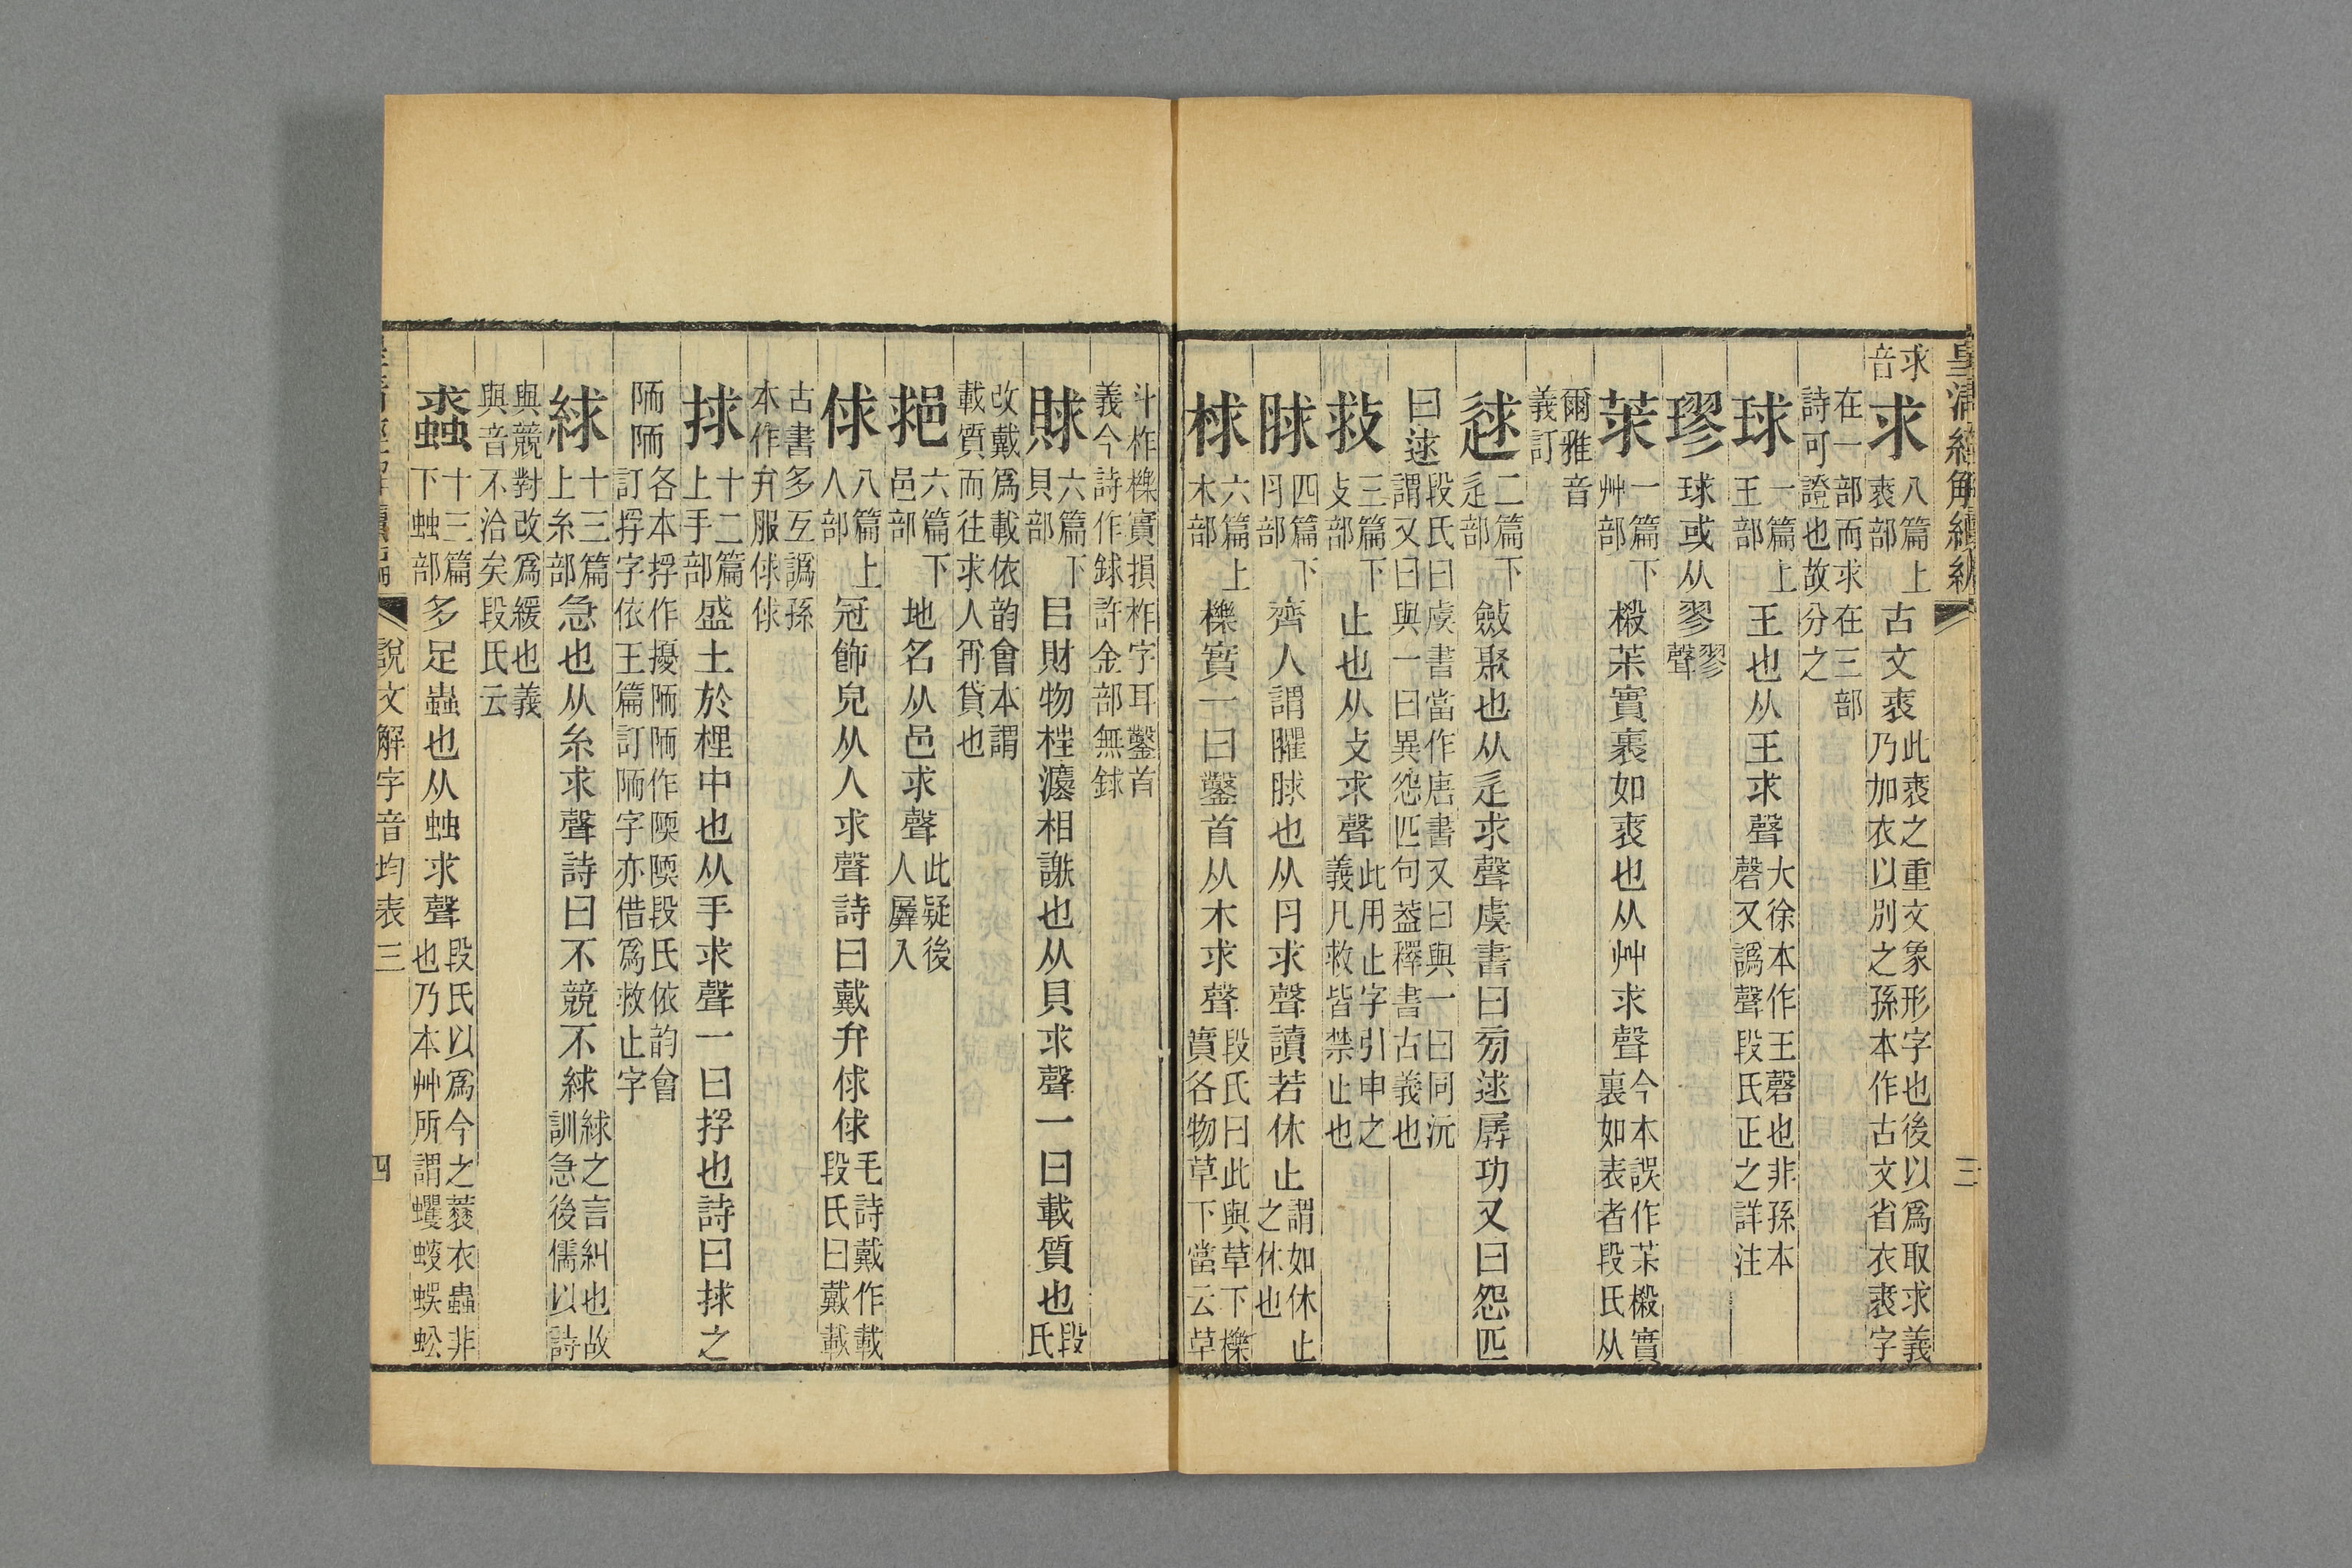 皇清經解續編
三
求音
求 八篇上裘部 古文裘 此裘之重文象形字也後以爲取求義乃加衣以別之孫本作古文省衣裘字
在一部而求在三部詩可證也故分之
球 一篇上王部 王也从王求聲 大徐本作王磬也非孫本磬又譌聲段氏正之詳注
璆 球或从翏 翏聲
莍 一篇下艸部 樧茱實裹如裘也从艸求聲 今本誤作茱樧實裏如表者段氏从
爾雅音義訂
逑 二篇下辵部 斂聚也从辵求聲虞書曰㫄逑孱功又曰怨匹
曰逑 段氏曰虞書當作唐書又曰與一曰同沅謂又曰與一曰異怨匹句葢釋書古義也
救 三篇下攴部 止也从攴求聲 此用止字引申之義凡救皆禁止也
脙 四篇下肉部 齊人謂臞脙也从肉求聲讀若休止 謂如休止之休也
梂 六篇上木部 櫟實一曰鑿首从木求聲 段氏曰此與草下櫟實各物草下當云草
斗柞櫟實損柞字耳鑿首義今詩作銶許金部無銶
賕 六篇下貝部 㠯財物枉灋相謝也从貝求聲一曰載質也 段氏
改戴爲載依韵會本謂載質而往求人罥貸也
𨛨 六篇下邑部 地名从邑求聲 此疑後人羼入
俅 八篇上人部 冠飾皃从人求聲詩曰戴弁俅俅 毛詩戴作載段氏曰戴載
古書多互譌孫本作弁服俅俅
捄 十二篇上手部 盛土於梩中也从手求聲一曰捊也詩曰捄之
陾陾 各本捊作擾陾陾作陾陾段氏依韵會訂捊字依玉篇訂陾字亦借爲救止字
絿 十三篇上糸部 急也从糸求聲詩曰不競不絿 絿之言糾也故訓急後儒以詩
與競對改爲緩也義與音不洽矣段氏云
蛷 十三篇下䖵部 多足蟲也从䖵求聲 段氏以爲今之蓑衣蟲非也乃本艸所謂蠼螋蜈蚣
說文解字音均表三
四